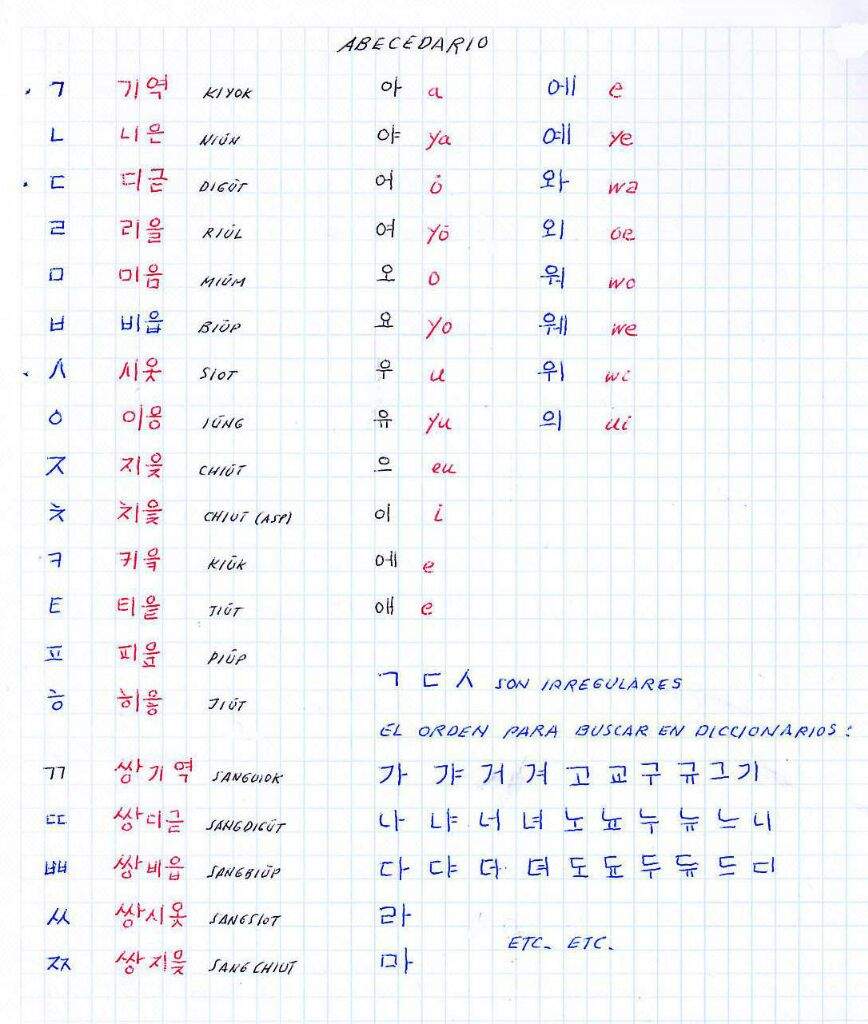 ABECEDARIO
ㄱ 기역 KIYOK 아 a 에 e
ㄴ 니은 NIŪN 야 ya 예 ye
ㄷ 디귿 DIGŪT 어 ō 와 wa
ㄹ 리을 RIŪL 여 yō 외 oe
ㅁ 미음 MIŪM 오 o 워 wo
ㅂ 비읍 BIŪP 요 yo 웨 we
ㅅ 시옷 SIOT 우 u 위 wi
ㅇ 이응 IŪNG 유 yu 의 ui
ㅈ 지읒 CHIŪT 으 eu
ㅊ 치읓 CHIUT (ASP) 이 i
ㅋ 키읔 KIŪK 에 e
ㅌ 티읕 TIŪT 애 e
ㅍ 피읖 PIŪP
ㅎ 히읗 JIŪT
ㄱ ㄷ ㅅ SON IRREGULARES
EL ORDEN PARA BUSCAR EN DICCIONARIOS:
ㄲ 쌍기역 SANGUIOK 가 갸 거 겨 고 교 구 규 그 기
ㄸ 쌍디귿 SANGDIGŪT 나 냐 너 녀 노 뇨 누 뉴 느 니
ㅃ 쌍비읍 SANGBIŪP 다 댜 더 뎌 도 됴 두 듀 드 디
ㅆ 쌍시옷 SANGSIOT 라
ETC. ETC.
ㅉ 쌍지읒 SANGCHIUT 마